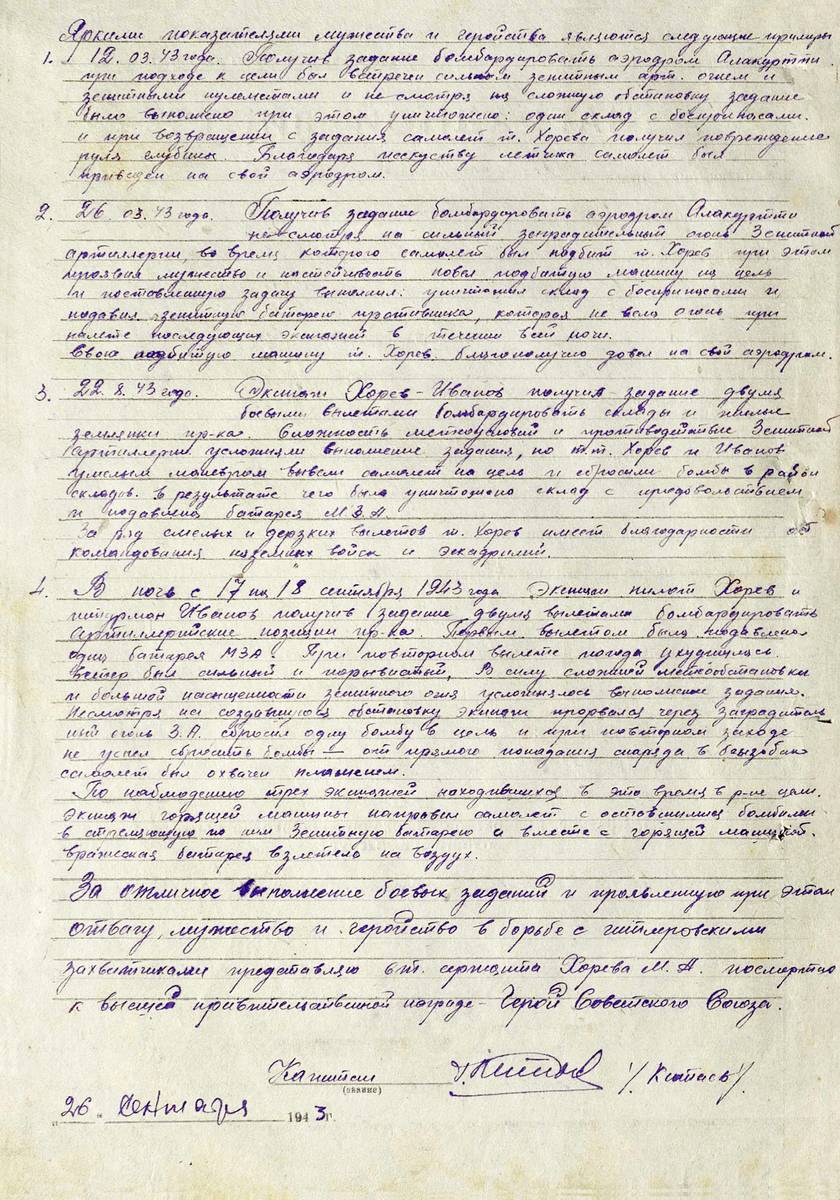 Яркими показателями мужества и геройства являются следующие примеры
1. 12.03.43 года. Получив задание бомбардировать аэродром Алакуртти
при подходе к цели был встречен сильным зенитным арт. огнем и
зенитными пулеметами и не смотря на сложную обстановку задание
было выполнено при этом уничтожено: один склад с боеприпасами.
и при возвращении с задания самолет т. Хорева получил повреждение
руля глубины. Благодаря исскуству летчика самолет был
приведен на свой аэродром.
2. 26.03.43 года. Получив задание бомбардировать аэродром Алакуртти
несмотря на сильный заградительный огонь Зенитной
артиллерии, во время которого самолет был подбит т. Хорев при этом
проявил мужество и настойчивость повел подбитую машину на цель
и поставленную задачу выполнил: уничтожил склад с боеприпасами и
подавил зенитную батарею противника, которая не вела огонь при
налете последующих экипажей в течении всей ночи.
Свою подбитую машину т. Хорев благополучно довел на свой аэродром.
3. 22.8.43 года. Экипаж Хорев-Иванов получил задание двумя
боевыми вылетами бомбардировать склады и жилые
землянки пр-ка. Сложность метеоусловий и противодействие Зенитной
артиллерии усложняли выполнение задания, но т.т. Хорев и Иванов
умелым маневром вывели самолет на цель и сбросили бомбы в район
складов. В результате чего было уничтожено склад с продовольствием
и подавлена батарея М.З.А
За ряд смелых и дерзких вылетов т. Хорев имеет благодарности от
командования наземных войск и эскадрилий.
4. В ночь с 17 на 18 сентября 1943 года Экипаж пилот Хорев и
штурман Иванов получив задание двумя вылетами бомбардировать
артиллерийские позиции пр-ка Первым вылетом была подавлена
одна батарея МЗА. При повторном вылете погода ухудшилась.
Ветер был сильный и порывистый, В силу сложной метеообстановки
и большой насыщенности зенитного огня усложнялось выполнение задания.
Несмотря на создавшуюся обстановку экипаж прорвался через заградитель
ный огонь З.А. сбросил одну бомбу в цель и при повторном заходе
не успел сбросить бомбы — от прямого попадания снаряда в бензобак
самолет был охвачен пламенем.
По наблюдению трех экипажей находившихся в это время в р-не цели.
экипаж горящей машины направил самолет с оставшимися бомбами
в стреляющую по ним Зенитную батарею и вместе с горящей машиной.
вражеская батарея взлетела на воздух.
За отличное выполнение боевых заданий и проявленную при этом
отвагу, мужество и геройство в борьбе с гитлеровскими
захватчиками представляю ст. сержанта Хорева М.А. посмертно
к высшей правительственной награде - Герой Советского Союза.
Капитан /Китась/
(звание)
"26" сентября 1943 г.